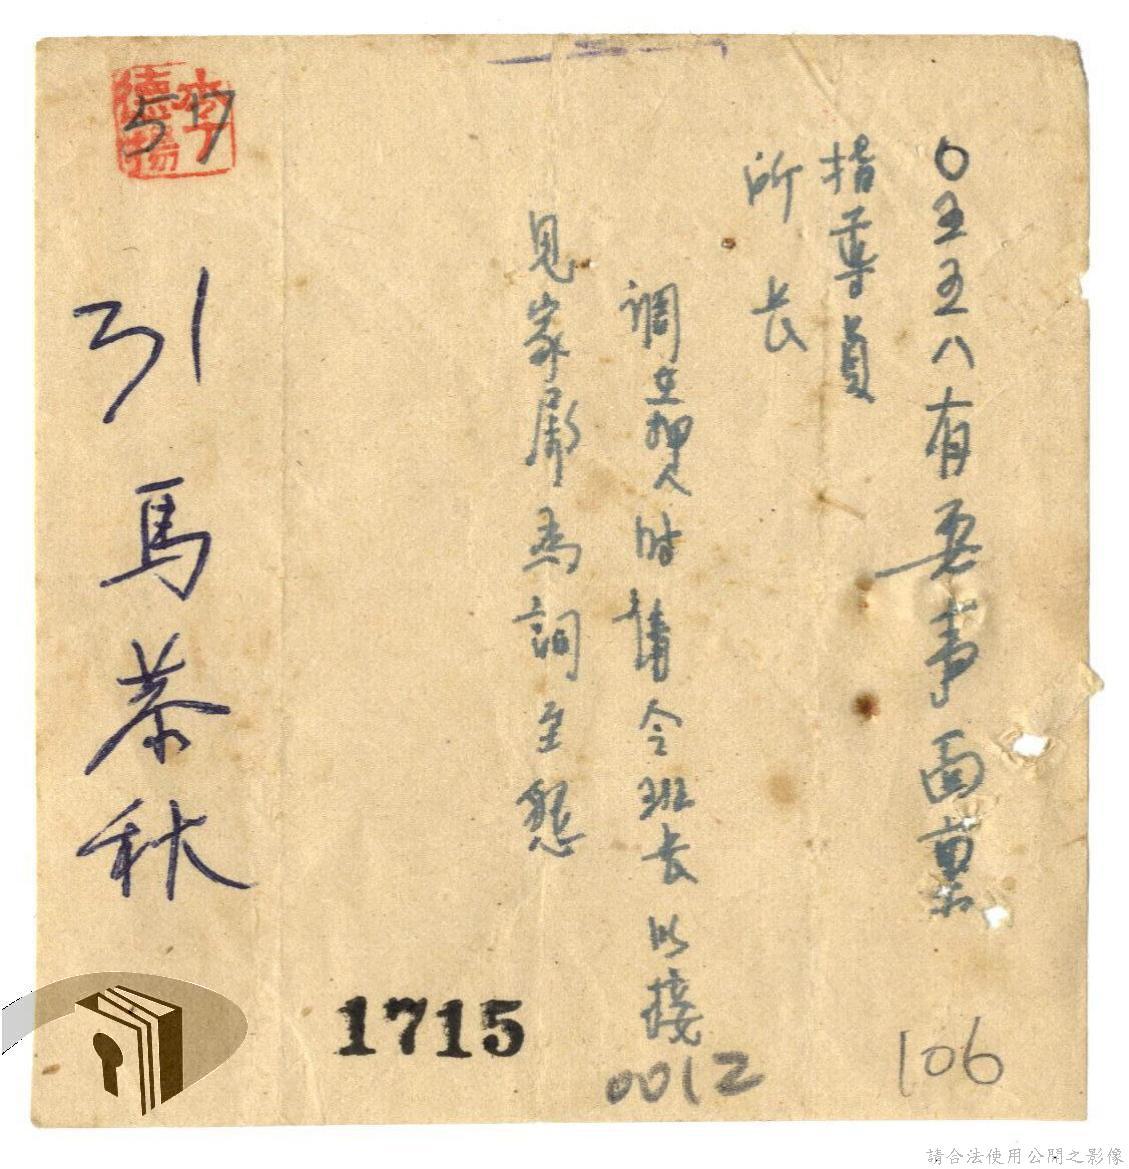 〇五五八有要事面稟
指導員
所長
調押人时請令班长以接
見家屬為詞至懇
引馬恭秋
李德揚
57
1715
0012
106
請合法使用公開之影像